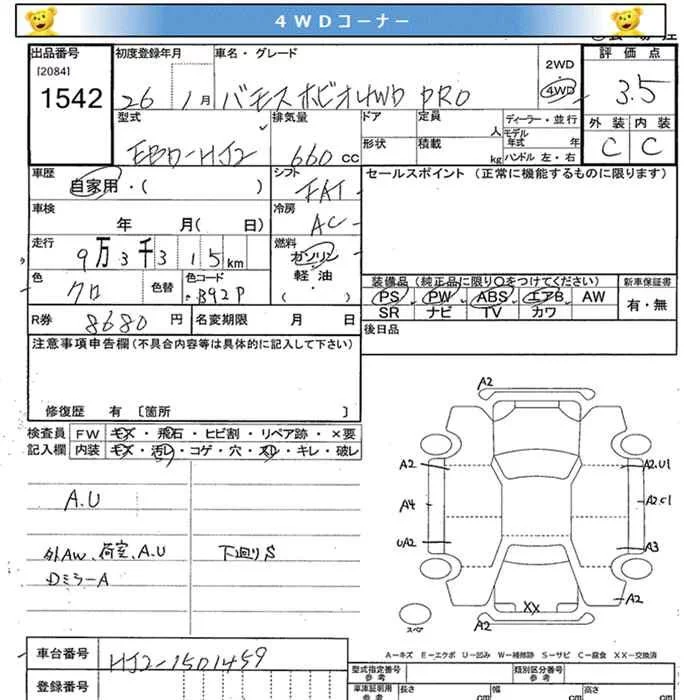 4WDコーナー
出品番号 初度登録年月 車名・グレード 2WD 評価点
[2084] 4WD
1542 26 1月 バモスホビオ4WD PRO 3.5
型式 排気量 ドア 定員 人 ディーラー・並行 外装 内装
モデル年式 年
EBD-HJ2 660cc 形状 積載 kg ハンドル 左・右 C C
車歴 自家用・( ) シフト FAT セールスポイント (正常に機能するものに限ります)
車検 年 月( 日) 冷房 AC
走行 9万3千315km 燃料 ガソリン 軽・油 ( )
色 クロ 色替 色コード B92P
装備品 (純正品に限り○をつけてください) 新車保証書
PS PW ABS エアB AW 有・無
SR ナビ TV カワ
R券 8680円 名変期限 月 日 後日品
注意事項申告欄(不具合内容等は具体的に記入して下さい)
修復歴 有 〔箇所 〕
検査員 FW キズ・飛石・ヒビ割・リペア跡・×要
記入欄 内装 キズ・汚レ・コゲ・穴・スレ・キレ・破レ
A.U
外AW、荷室、A.U 下廻りS
DミラーA
A2
A2 A2.U1
A4 A2.C1
UA2 A3
XX A2
スペア A2
A-キズ E-エクボ U-凹み W-補修跡 S-サビ C-腐食 XX-交換済
車台番号 HJ2-1501459
登録番号
型式指定番号 参考 類別区分番号 参考
車庫証明用 参考 長さ cm 幅 cm 高さ cm